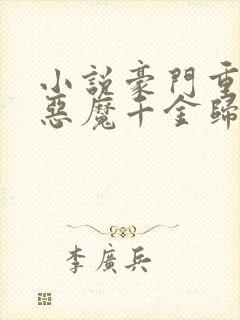 小說豪門重
惡魔千金歸
李廣兵